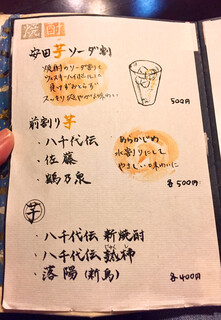 焼酎
安田芋ソーダ割
焼酎のソーダ割り
ウィスキーハイボールに
負けずおとらず
スッキリ爽やかな味わい
500円
前割り芋
・八千代伝
・佐藤
・鶴乃泉
あらかじめ
水割りにして
やさしい味わいに
各500円
芋
・八千代伝 新焼酎
・八千代伝 熟柿
じゅくし
・落陽(新島)
各400円